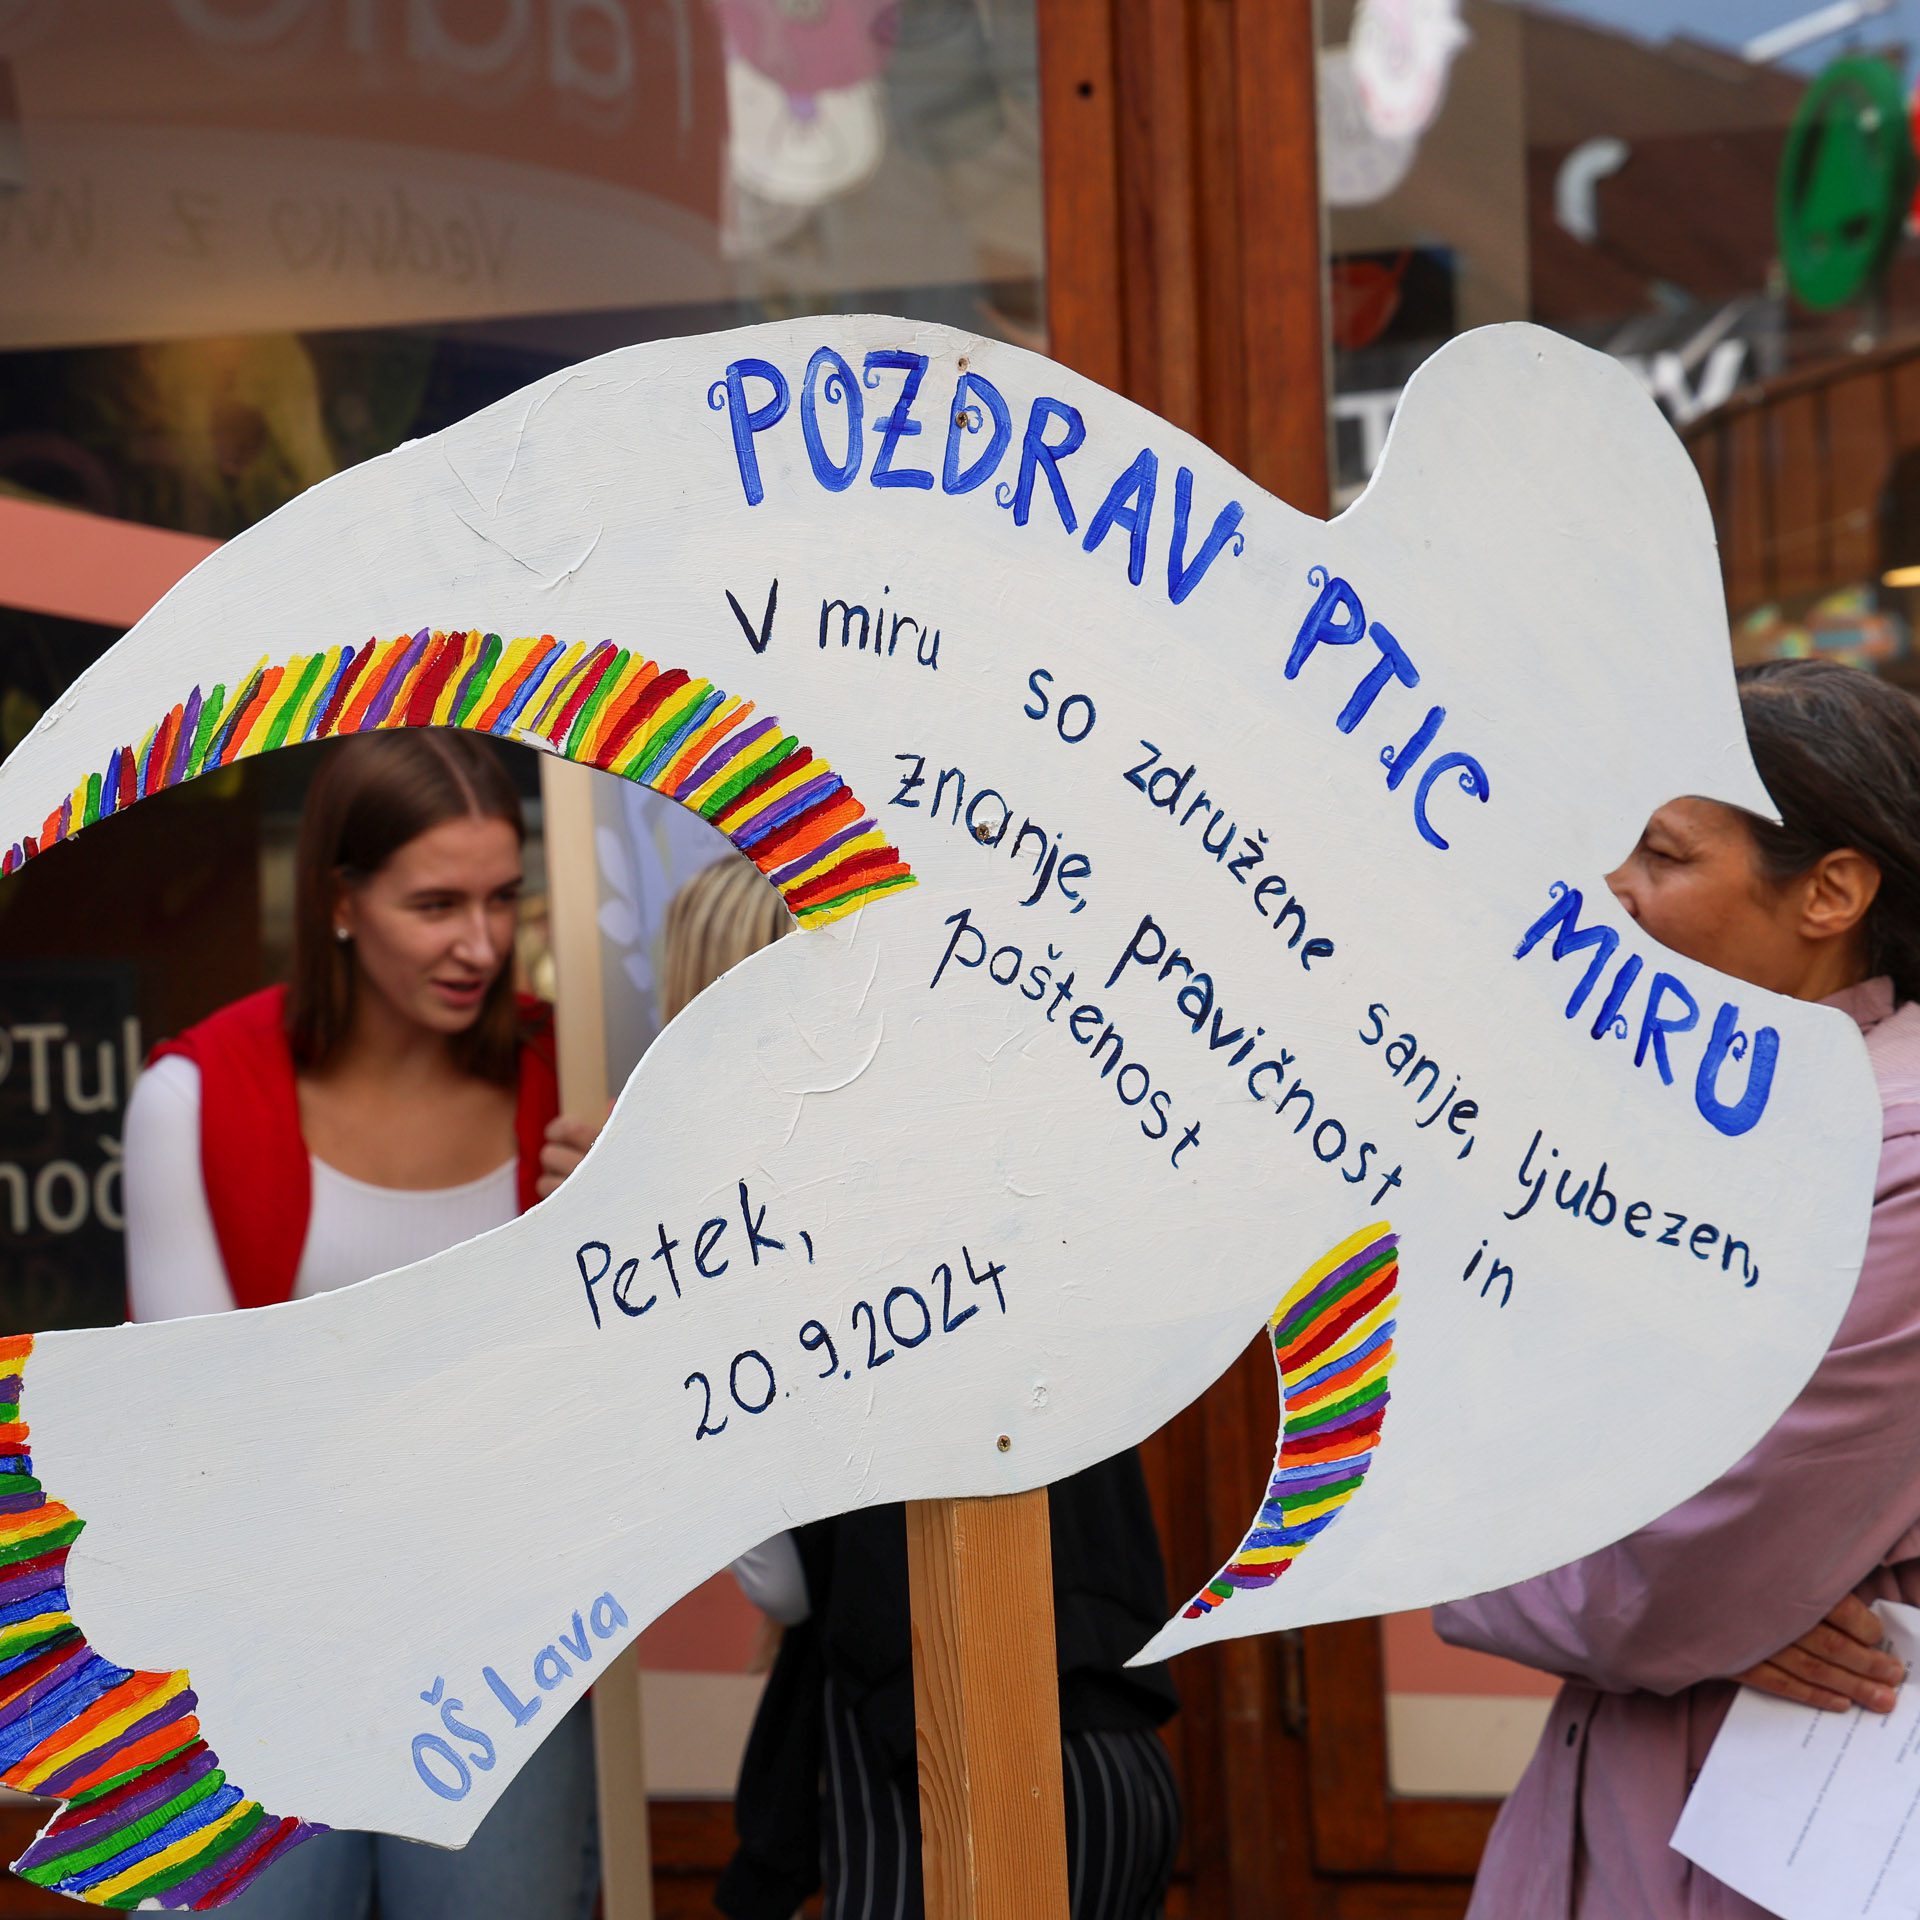 POZDRAV PTIC MIRU
V miru so združene sanje, ljubezen,
znanje, pravičnost in
poštenost
Petek,
20.9.2024
OŠ Lava